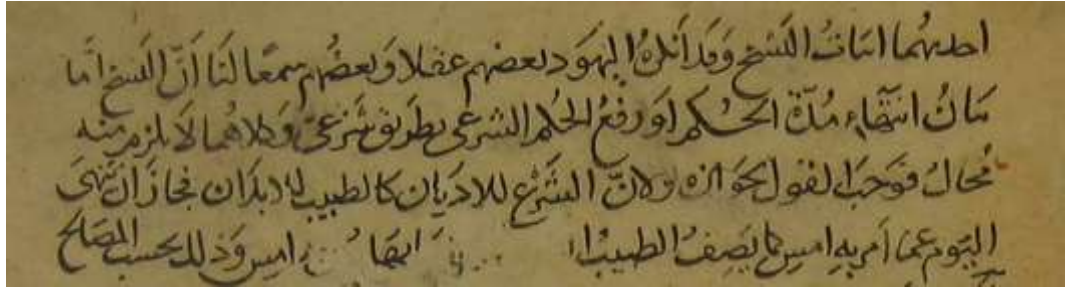 احدهما اثبات النسخ وقد انكره اليهود بعضهم عقلا وبعضهم سمعا لنا أنّ النسخ امّا
بيان انتهاء مدّة الحكم او رفع الحكم الشرعي بطريق شرعي وكلاهما لا يلزم منه
محال فوجب القول بجوازه ولانّ الشرع للاديان كالطبيب للابدان فجاز أن ينهى
اليوم عمّا أمر به امس كما يصف الطبيب امس وذلك بحسب المصالح